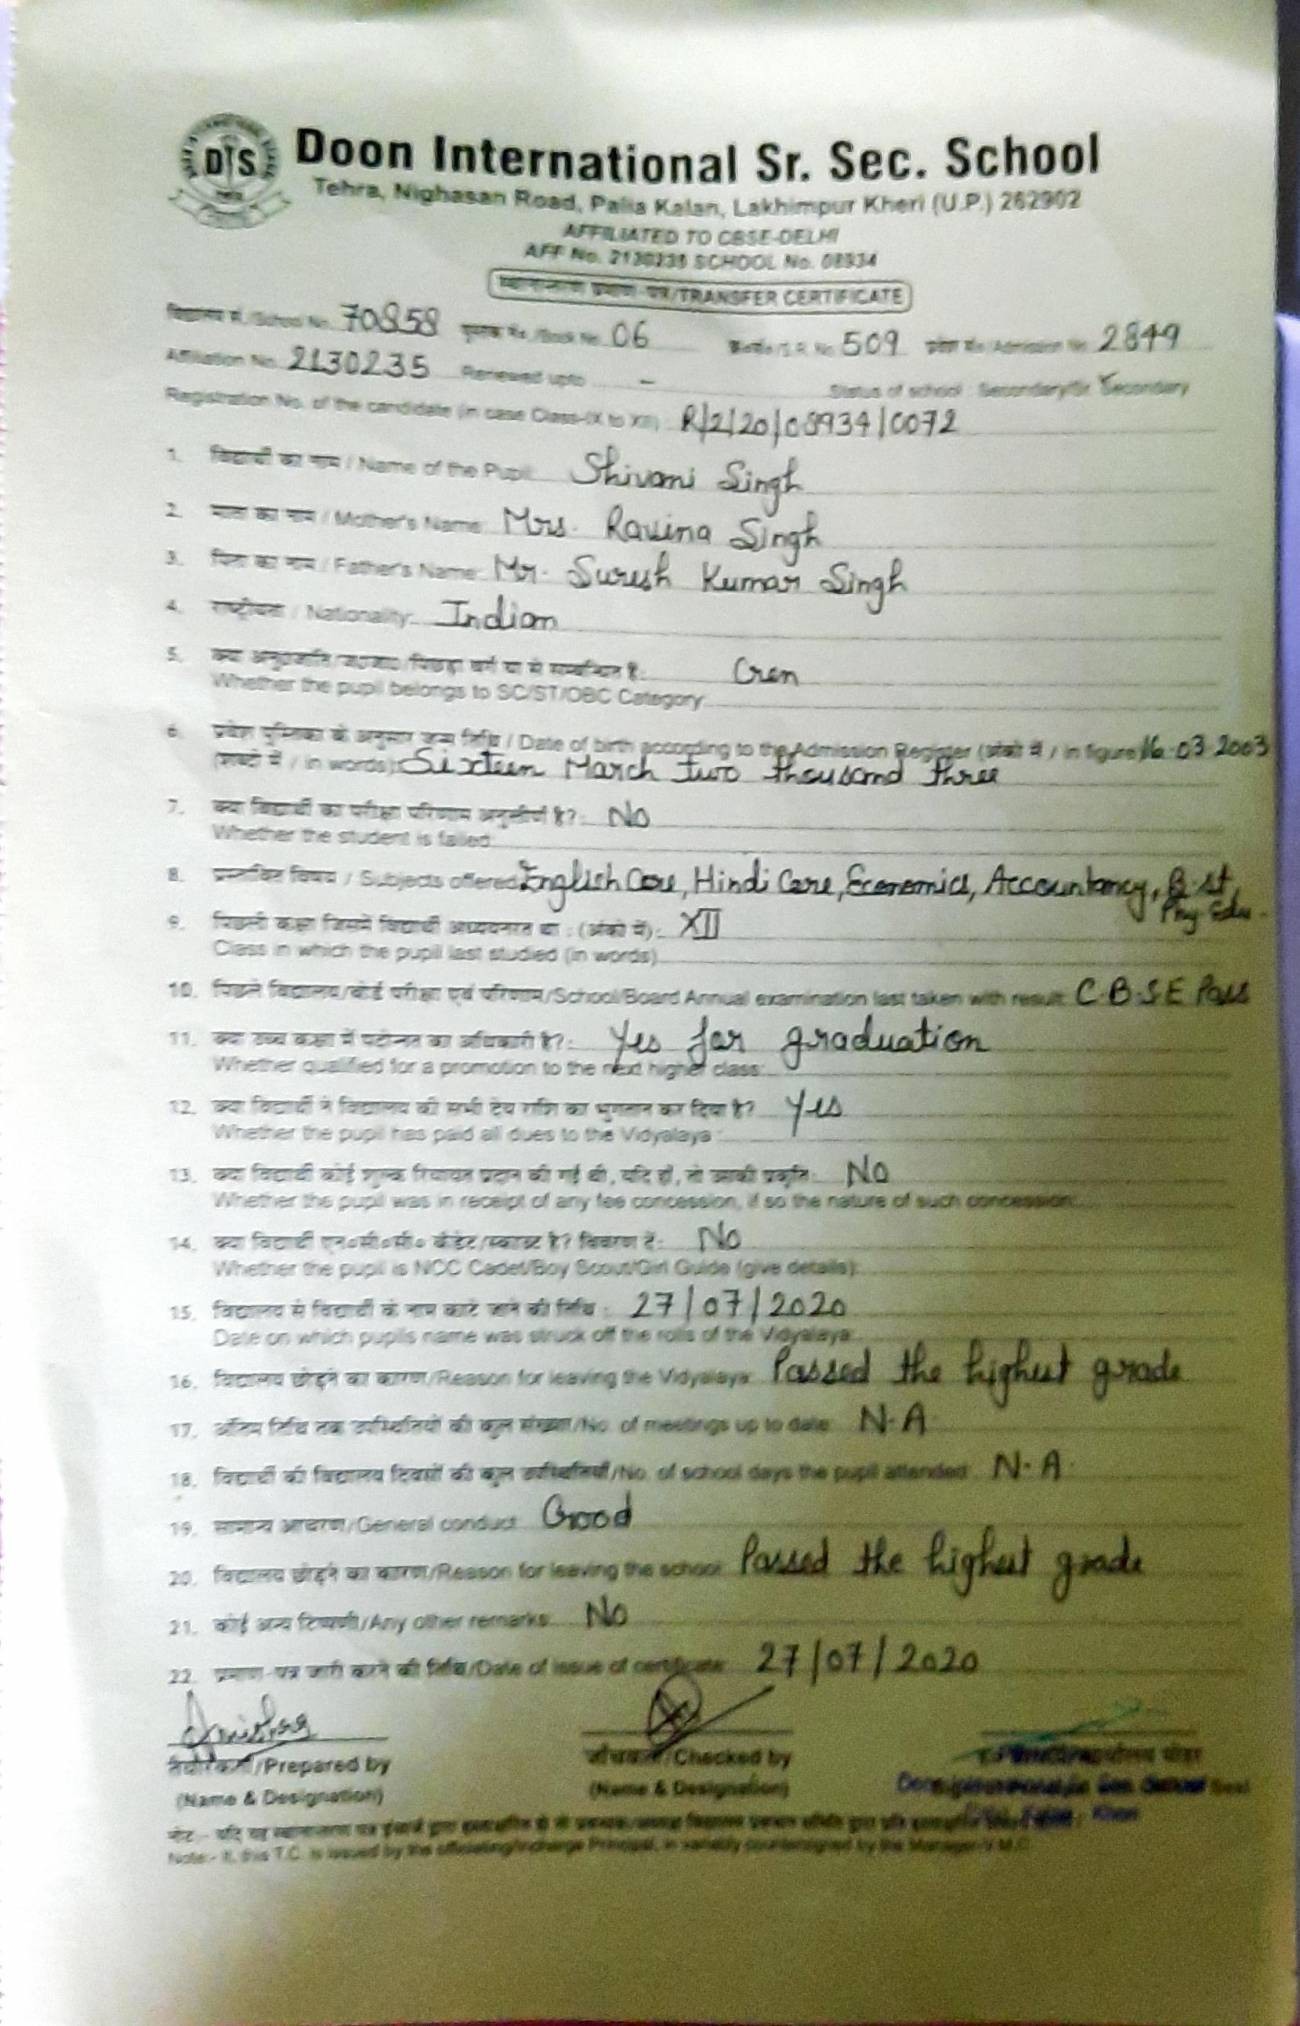 DIS
Doon International Sr. Sec. School
Tehra, Nighasan Road, Palia Kalan, Lakhimpur Kheri (U.P.) 262902
AFFILIATED TO CBSE-DELHI
AFF No. 2130235 SCHOOL No. 08934
स्थानान्तरण प्रमाण-पत्र/TRANSFER CERTIFICATE
विद्यालय सं./School No. 70858 पुस्तक सं./Book No. 06 S.R. No. 509 प्रवेश सं./Admission No. 2849
Affiliation No. 2130235 Renewed upto - Status of school : Secondary/Sr. Secondary
Registration No. of the candidate (in case Class-IX to XII) R/2/20/08934/0072
1. विद्यार्थी का नाम / Name of the Pupil: Shivani Singh
2. माता का नाम / Mother's Name: Mrs. Ravina Singh
3. पिता का नाम / Father's Name: Mr. Suresh Kumar Singh
4. राष्ट्रीयता / Nationality: Indian
5. क्या अनु०जाति/ज०जा०/पिछड़ा वर्ग या से सम्बन्धित है: Gen
Whether the pupil belongs to SC/ST/OBC Category
6. प्रवेश पुस्तिका के अनुसार जन्म तिथि / Date of birth according to the Admission Register (अंको में / in figure) 16.03.2003
(शब्दो में / in words): Sixteen March two thousand three
7. क्या विद्यार्थी का परीक्षा परिणाम अनुत्तीर्ण है?: No
Whether the student is failed:
8. प्रस्तावित विषय / Subjects offered: English Core, Hindi Core, Economics, Accountancy, B.st,
Phy. Edu.
9. पिछली कक्षा जिसमें विद्यार्थी अध्ययनरत था : (अंको में): XII
Class in which the pupil last studied (in words)
10. पिछले विद्यालय/बोर्ड परीक्षा एवं परिणाम/School/Board Annual examination last taken with result: C.B.S.E Pass
11. क्या उच्च कक्षा में पदोन्नत का अधिकारी है?: Yes for graduation
Whether qualified for a promotion to the next higher class:
12. क्या विद्यार्थी ने विद्यालय की सभी देय राशि का भुगतान कर दिया है? Yes
Whether the pupil has paid all dues to the Vidyalaya :
13. क्या विद्यार्थी कोई शुल्क रियायत प्रदान की गई थी, यदि हाँ, तो उसकी प्रकृति: No
Whether the pupil was in receipt of any fee concession, if so the nature of such concession:
14. क्या विद्यार्थी एन०सी०सी० कैडेट/स्काउट है? विवरण दें: No
Whether the pupil is NCC Cadet/Boy Scout/Girl Guide (give details):
15. विद्यालय से विद्यार्थी के नाम काटे जाने की तिथि : 27/07/2020
Date on which pupils name was struck off the rolls of the Vidyalaya:
16. विद्यालय छोड़ने का कारण/Reason for leaving the Vidyalaya: Passed the highest grade
17. अंतिम तिथि तक उपस्थितियों की कुल संख्या/No. of meetings up to date: N.A
18. विद्यार्थी की विद्यालय दिवसों की कुल उपस्थितियाँ/No. of school days the pupil attended: N.A.
19. सामान्य आचरण/General conduct: Good
20. विद्यालय छोड़ने का कारण/Reason for leaving the school: Passed the highest grade
21. कोई अन्य टिप्पणी/Any other remarks: No
22. प्रमाण-पत्र जारी करने की तिथि/Date of issue of certificate: 27/07/2020
तैयारकर्ता/Prepared by जाँचकर्ता/Checked by
(Name & Designation) (Name & Designation)
Note:- If, this T.C. is issued by the officiating/incharge Principal, in variably countersigned by the Manager/V.M.C.